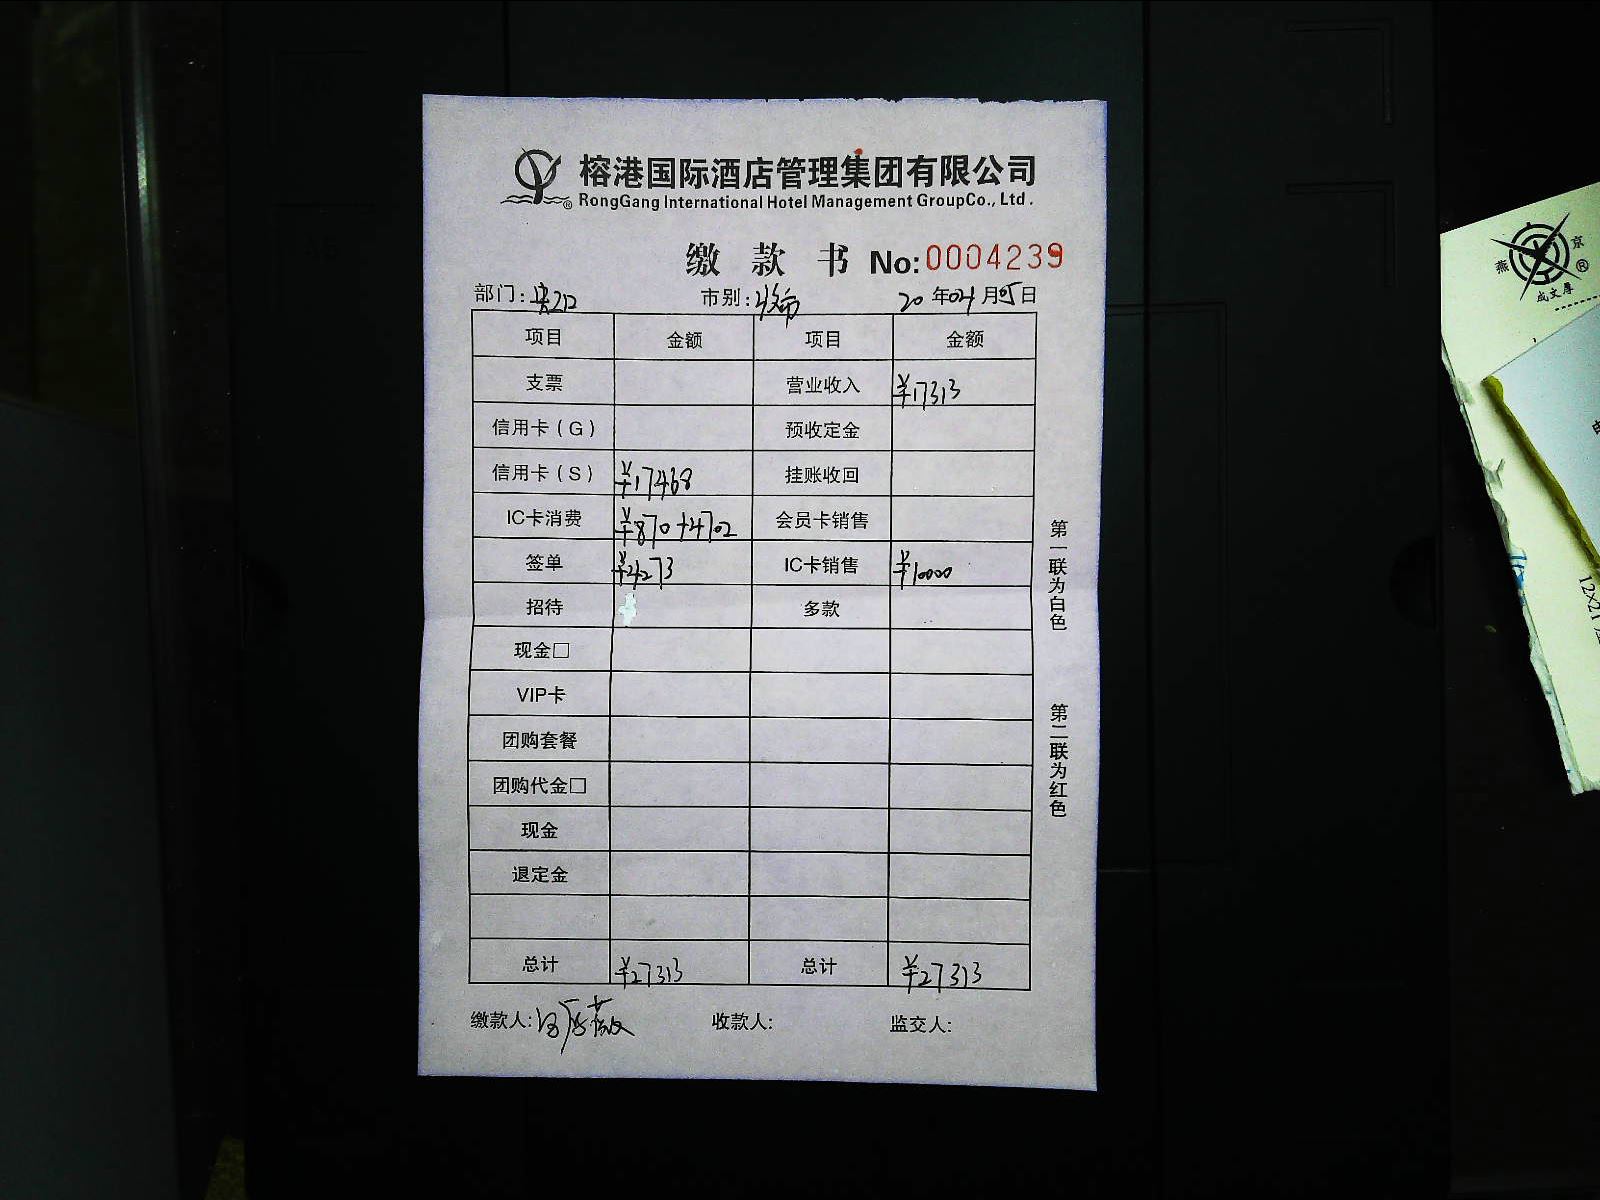 榕港国际酒店管理集团有限公司
RongGang International Hotel Management GroupCo., Ltd.
缴款书 No:0004239
部门: 市别: 20年04月05日
项目 金额 项目 金额
支票 营业收入 ¥17313
信用卡(G) 预收定金
信用卡(S) ¥17468 挂账收回
IC卡消费 ¥870+4702 会员卡销售
签单 ¥4273 IC卡销售 ¥10000
招待 多款
现金□
VIP卡
团购套餐
团购代金□
现金
退定金
总计 ¥27313 总计 ¥27313
缴款人: 收款人: 监交人:
第一联为白色
第二联为红色
燕京
®
成文厚
12×21